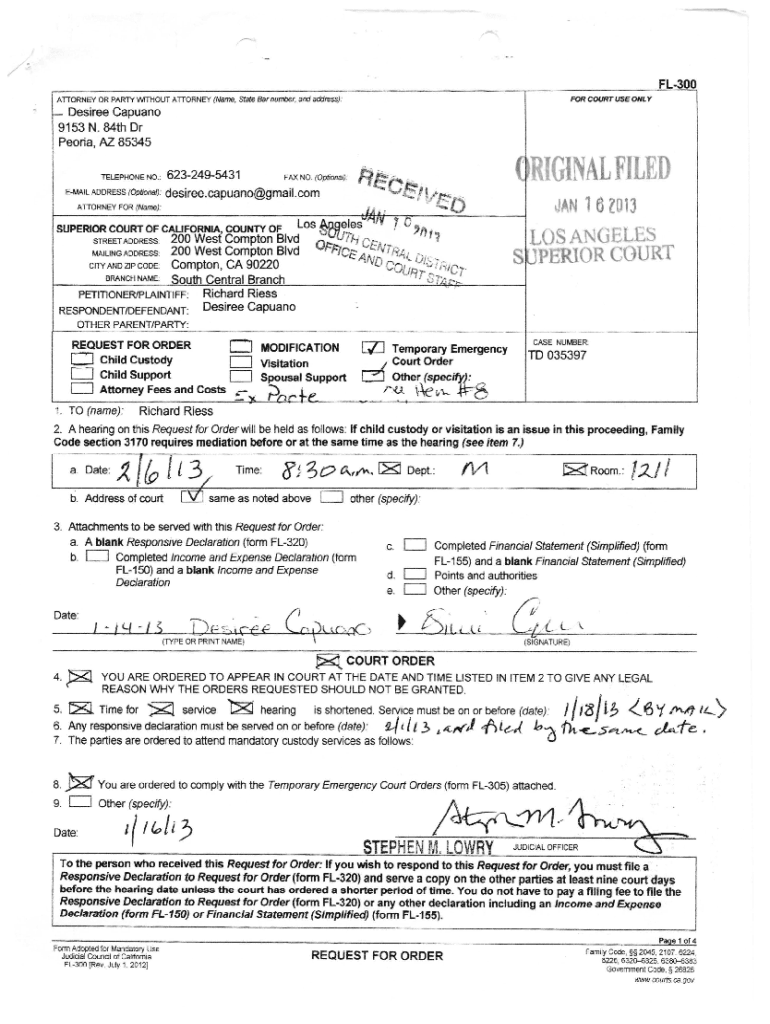 FL-300
ATTORNEY OR PARTY WITHOUT ATTORNEY (Name, State Bar number, and address):
FOR COURT USE ONLY
Desiree Capuano
9153 N. 84th Dr
Peoria, AZ 85345
TELEPHONE NO.: 623-249-5431 FAX NO. (Optional):
E-MAIL ADDRESS (Optional): desiree.capuano@gmail.com
ATTORNEY FOR (Name):
RECEIVED
JAN 10 2013
SOUTH CENTRAL DISTRICT
OFFICE AND COURT STAFF
ORIGINAL FILED
JAN 16 2013
LOS ANGELES
SUPERIOR COURT
SUPERIOR COURT OF CALIFORNIA, COUNTY OF Los Angeles
STREET ADDRESS: 200 West Compton Blvd
MAILING ADDRESS: 200 West Compton Blvd
CITY AND ZIP CODE: Compton, CA 90220
BRANCH NAME: South Central Branch
PETITIONER/PLAINTIFF: Richard Riess
RESPONDENT/DEFENDANT: Desiree Capuano
OTHER PARENT/PARTY:
REQUEST FOR ORDER MODIFICATION Temporary Emergency
Child Custody Visitation Court Order
Child Support Spousal Support Other (specify):
Attorney Fees and Costs Ex Parte item #8
CASE NUMBER:
TD 035397
1. TO (name): Richard Riess
2. A hearing on this Request for Order will be held as follows: If child custody or visitation is an issue in this proceeding, Family
Code section 3170 requires mediation before or at the same time as the hearing (see item 7.)
a. Date: 2/6/13 Time: 8:30 a.m. Dept.: M Room.: 1211
b. Address of court same as noted above other (specify):
3. Attachments to be served with this Request for Order:
a. A blank Responsive Declaration (form FL-320)
b. Completed Income and Expense Declaration (form
FL-150) and a blank Income and Expense
Declaration
c. Completed Financial Statement (Simplified) (form
FL-155) and a blank Financial Statement (Simplified)
d. Points and authorities
e. Other (specify):
Date:
1-14-13 Desiree Capuano
(TYPE OR PRINT NAME) (SIGNATURE)
COURT ORDER
4. YOU ARE ORDERED TO APPEAR IN COURT AT THE DATE AND TIME LISTED IN ITEM 2 TO GIVE ANY LEGAL
REASON WHY THE ORDERS REQUESTED SHOULD NOT BE GRANTED.
5. Time for service hearing is shortened. Service must be on or before (date): 1/18/13 <BY MAIL>
6. Any responsive declaration must be served on or before (date): 2/1/13, and filed by the same date.
7. The parties are ordered to attend mandatory custody services as follows:
8. You are ordered to comply with the Temporary Emergency Court Orders (form FL-305) attached.
9. Other (specify):
Date: 1/16/13
STEPHEN M. LOWRY JUDICIAL OFFICER
To the person who received this Request for Order: If you wish to respond to this Request for Order, you must file a
Responsive Declaration to Request for Order (form FL-320) and serve a copy on the other parties at least nine court days
before the hearing date unless the court has ordered a shorter period of time. You do not have to pay a filing fee to file the
Responsive Declaration to Request for Order (form FL-320) or any other declaration including an Income and Expense
Declaration (form FL-150) or Financial Statement (Simplified) (form FL-155).
Page 1 of 4
Form Adopted for Mandatory Use
Judicial Council of California
FL-300 [Rev. July 1, 2012]
REQUEST FOR ORDER
Family Code, §§ 2045, 2107, 6224,
6226, 6320–6326, 6380–6383
Government Code, § 26826
www.courts.ca.gov